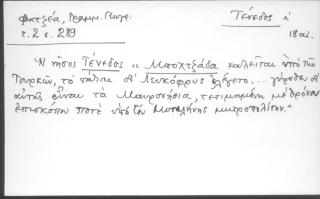 Φατζέα, Γραμμ. Γεωγρ.
τ. 2 σ. 289
Τένεδος ἡ
18 αἰ.
Ἡ νῆσος Τένεδος " Μποχτζάδα καλεῖται ὑπὸ τῶν
Τουρκῶν, τὸ πάλαι δ' Λευκόφρυς ἐλέγετο... γύρωθεν δ'
αὐτῆς εἶναι τὰ Μαυρονήσια, τετιμημένη μὲ θρόνον
ἐπισκόπου ποτὲ ὑπὸ τὸν Μυτιλήνης μητροπολίτην."